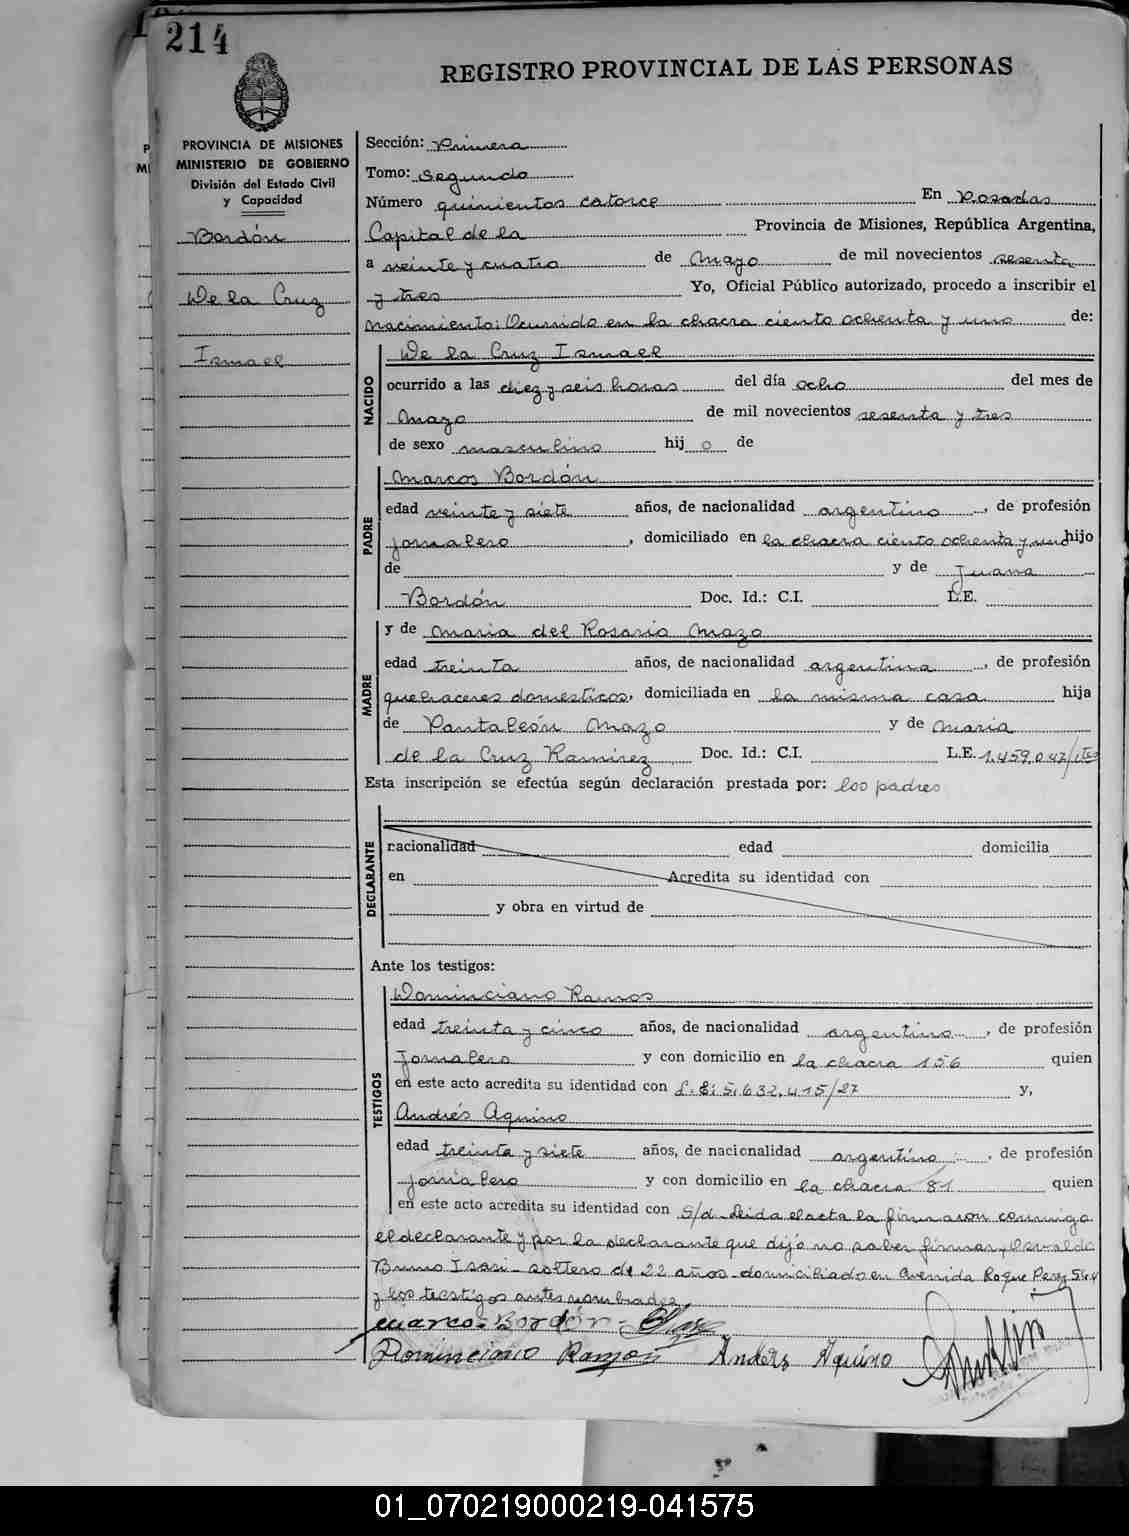 214
REGISTRO PROVINCIAL DE LAS PERSONAS
PROVINCIA DE MISIONES
MINISTERIO DE GOBIERNO
División del Estado Civil
y Capacidad
Bordón
De la Cruz
Ismael
Sección: Primera
Tomo: Segundo
Número quinientos catorce En Posadas
Capital de la Provincia de Misiones, República Argentina,
a veinte y cuatro de Mayo de mil novecientos sesenta
y tres Yo, Oficial Público autorizado, procedo a inscribir el
nacimiento: Ocurrido en la chacra ciento ochenta y uno de:
NACIDO
De la Cruz Ismael
ocurrido a las diez y seis horas del día ocho del mes de
Mayo de mil novecientos sesenta y tres
de sexo masculino hij o de
PADRE
Marcos Bordón
edad veinte y siete años, de nacionalidad argentino, de profesión
jornalero, domiciliado en la chacra ciento ochenta y uno hijo
de y de Juana
Bordón Doc. Id.: C.I. L.E.
MADRE
y de Maria del Rosario Mazo
edad treinta años, de nacionalidad argentina, de profesión
quehaceres domesticos, domiciliada en la misma casa hija
de Pantaleón Mazo y de Maria
de la Cruz Ramirez Doc. Id.: C.I. L.E. 1.459.047/
Esta inscripción se efectúa según declaración prestada por: los padres
DECLARANTE
nacionalidad edad domicilia
en Acredita su identidad con
y obra en virtud de
Ante los testigos:
TESTIGOS
Dominciano Ramos
edad treinta y cinco años, de nacionalidad argentino, de profesión
Jornalero y con domicilio en la chacra 156 quien
en este acto acredita su identidad con L.E: 5.632.415/27 y,
Andrés Aquino
edad treinta y siete años, de nacionalidad argentino, de profesión
jornalero y con domicilio en la chacra 81 quien
en este acto acredita su identidad con S/d. Leida el acta la firmaron conmigo
el declarante y por la declarante que dijo no saber firmar, Osvaldo
Bruno Isasi - soltero de 22 años - domiciliado en Avenida Roque Perez 544
y los testigos antes nombrados
Marcos Bordón
Dominciano Ramos Anders Aquino
01_070219000219-041575